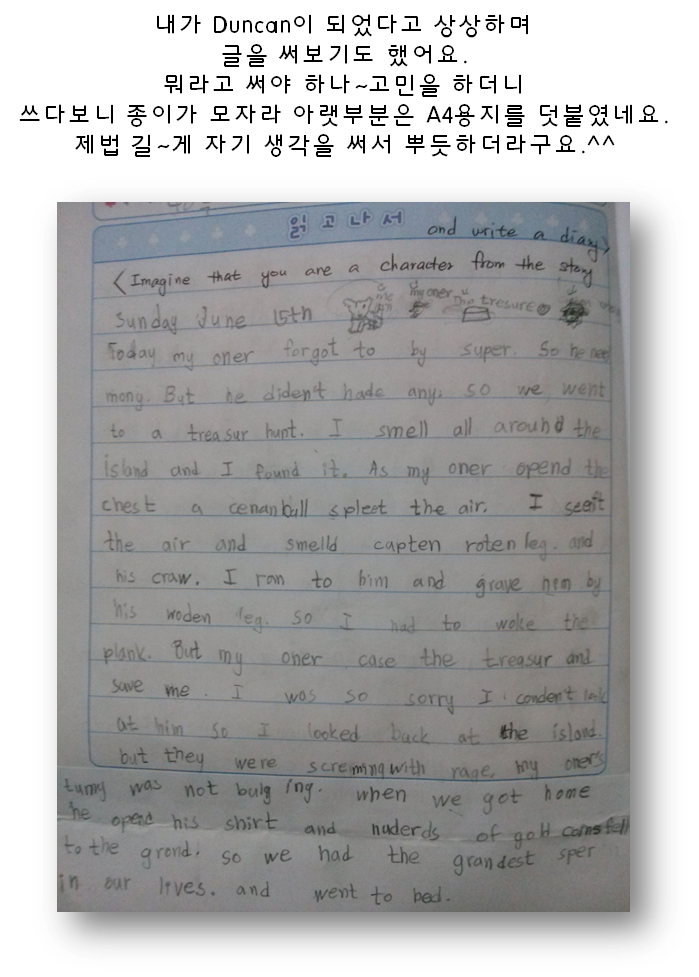 내가 Duncan이 되었다고 상상하며
글을 써보기도 했어요.
뭐라고 써야 하나~고민을 하더니
쓰다보니 종이가 모자라 아랫부분은 A4용지를 덧붙였네요.
제법 길~게 자기 생각을 써서 뿌듯하더라구요.^^
읽고 나서 and write a diary>
<Imagine that you are a character from the story
Sunday June 15th my oner tresure
Today my oner forgot to by super. So he need
mony. But he diden't hade any. so we went
to a treasur hunt. I smell all around the
island and I found it. As my oner opend the
chest a cenanball spleet the air. I seeft
the air and smelld capten roten leg. and
his craw. I ran to him and grave him by
his woden leg. so I had to woke the
plank. But my oner case the treasur and
save me. I was so sorry I condent look
at him so I looked back at the island.
but they were screming with rage. my oner's
tumy was not bulging. when we got home
he opend his shirt and nuderds of gold coins fell
to the grond. so we had the grandest sper
in our lives. and went to bed.